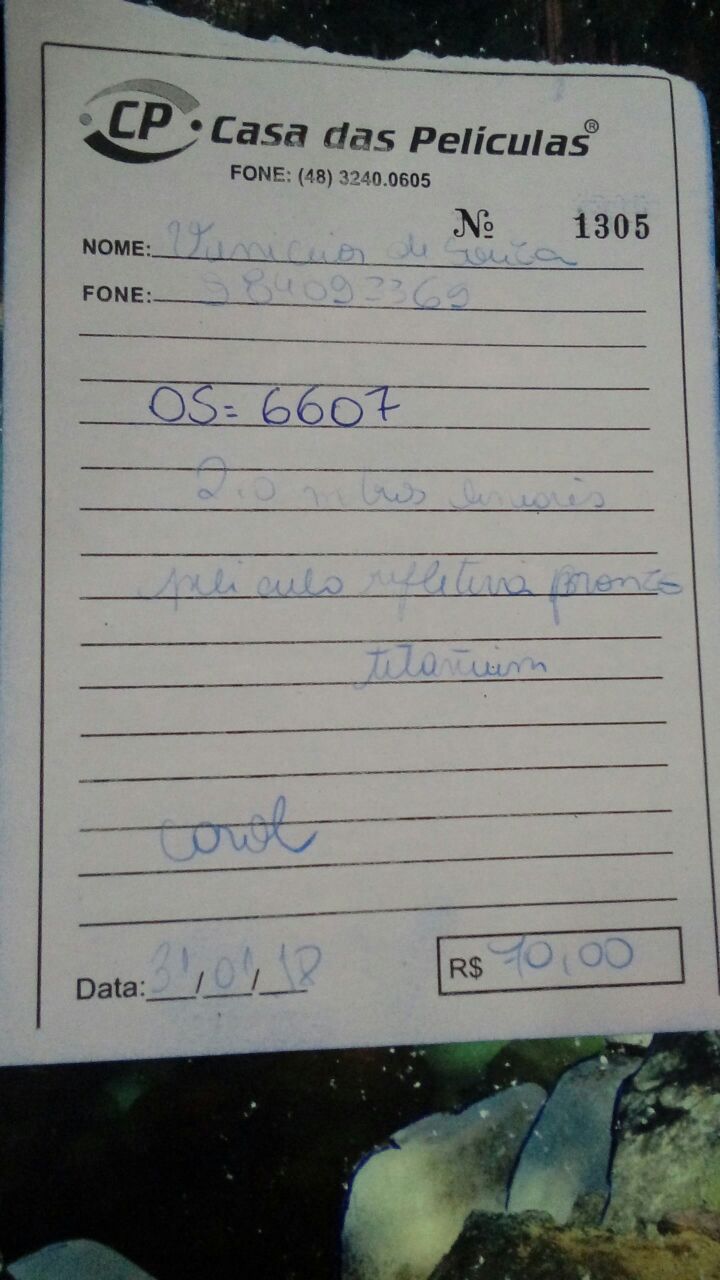 CP Casa das Películas®
FONE: (48) 3240.0605
Nº 1305
NOME: Vinicius de Souza
FONE: 984093369
OS= 6607
2.0 mtros lineares
pelicula refletiva bronze
titanium
carol
Data: 31/01/18
R$ 70,00